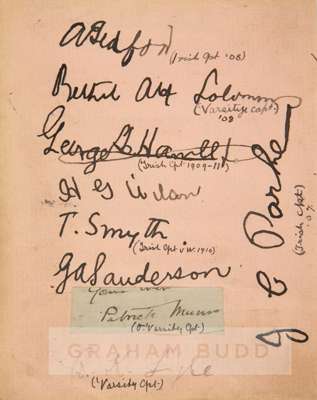 (Irish Cpt '08)
Bethel Alex Solomons
(Varsity capt.)
'08
George G Hamlet
(Irish Cpt 1909-11)
H G Wilson
T. Smyth
(Irish Cpt v W. 1910)
G A Sanderson
Patrick Munro
(O. Varsity Cpt.)
('Varsity Cpt.)
J C Parke
(Irish Cpt)
'07
GRAHAM BUDD